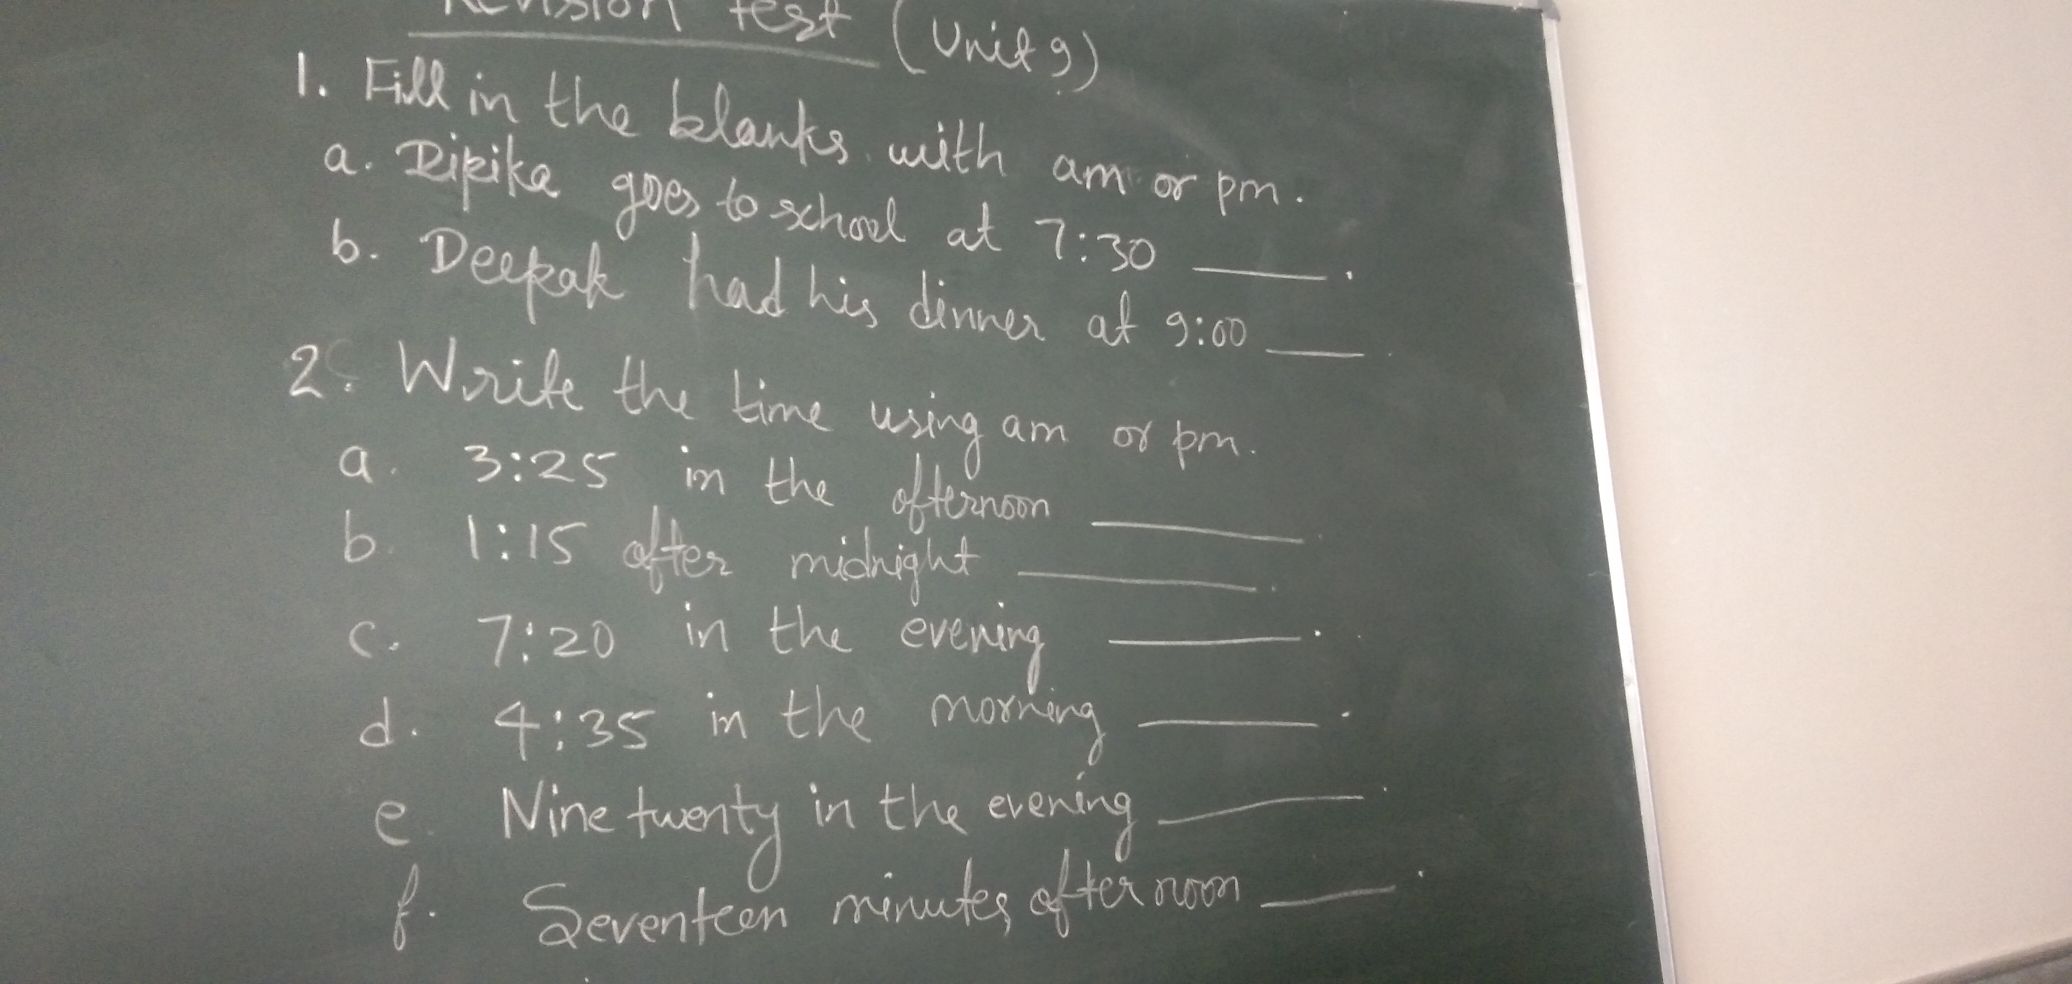 Revision test (Unit 9)
1. Fill in the blanks with am or pm.
a. Dipika goes to school at 7:30 ____.
b. Deepak had his dinner at 9:00 ____.
2. Write the time using am or pm.
a. 3:25 in the afternoon ____.
b. 1:15 after midnight ____.
c. 7:20 in the evening ____.
d. 4:35 in the morning ____.
e. Nine twenty in the evening ____.
f. Seventeen minutes after noon ____.